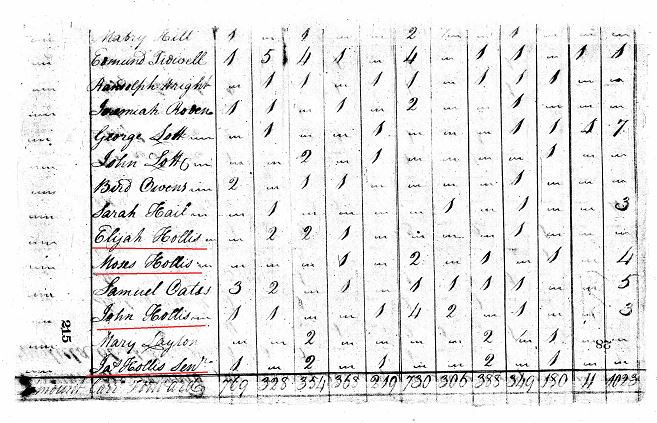 Mabry Hill 1 1 2 1
Edmund Tidwell 1 5 4 1 4 1 1 1 1
Randolph Wright 1 1 1 1 1 1 1
Jeremiah 1 1 1 2 1
George Lott 1 1 1 1 4 7
John Lott 2 1 1
Bird Owens 2 1 1 1
Sarah Hail 1 1 3
Elijah Hollis 2 2 1 1
Moses Hollis 1 2 1 1 4
Samuel Oates 3 2 1 1 1 1 1 5
John Hollis 1 1 1 4 2 1 3
215
Mary Layton 2 2 1
28
Jas Hollis Senr 1 2 1 2 1
Amount Card 769 328 354 368 219 730 306 388 349 180 11 1023